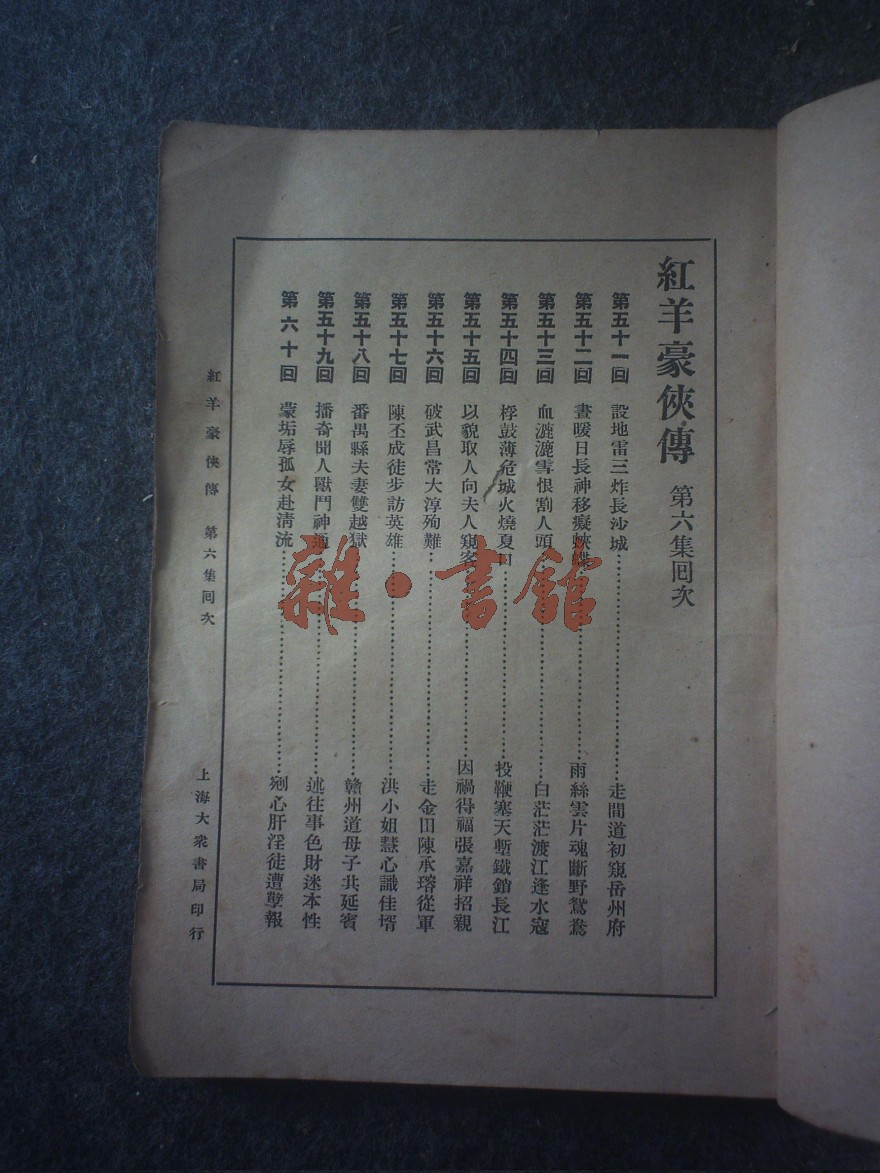 紅羊豪俠傳 第六集囘次
第五十一囘 設地雷三炸長沙城 走間道初窺岳州府
第五十二囘 晝暖日長神移癡蛺蝶 雨絲雲片魂斷野鴛鴦
第五十三囘 血漉漉雪恨割人頭 白茫茫渡江逢水寇
第五十四囘 桴鼓薄危城火燒夏口 投鞭塞天塹鐵鎖長江
第五十五囘 以貌取人向夫人窺客 因禍得福張嘉祥招親
第五十六囘 破武昌常大淳殉難 走金田陳承瑢從軍
第五十七囘 陳丕成徒步訪英雄 洪小姐慧心識佳壻
第五十八囘 番禺縣夫妻雙越獄 贛州道母子共延賓
第五十九囘 播奇聞人獸鬥神通 述往事色財迷本性
第六十囘 蒙垢辱孤女赴清流 剜心肝淫徒遭孽報
紅羊豪俠傳 第六集囘次 上海大衆書局印行
雜·書館